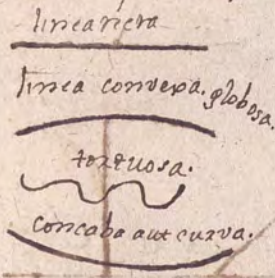 linea recta
linea convexa. globosa.
tortuosa.
concaba aut curva.